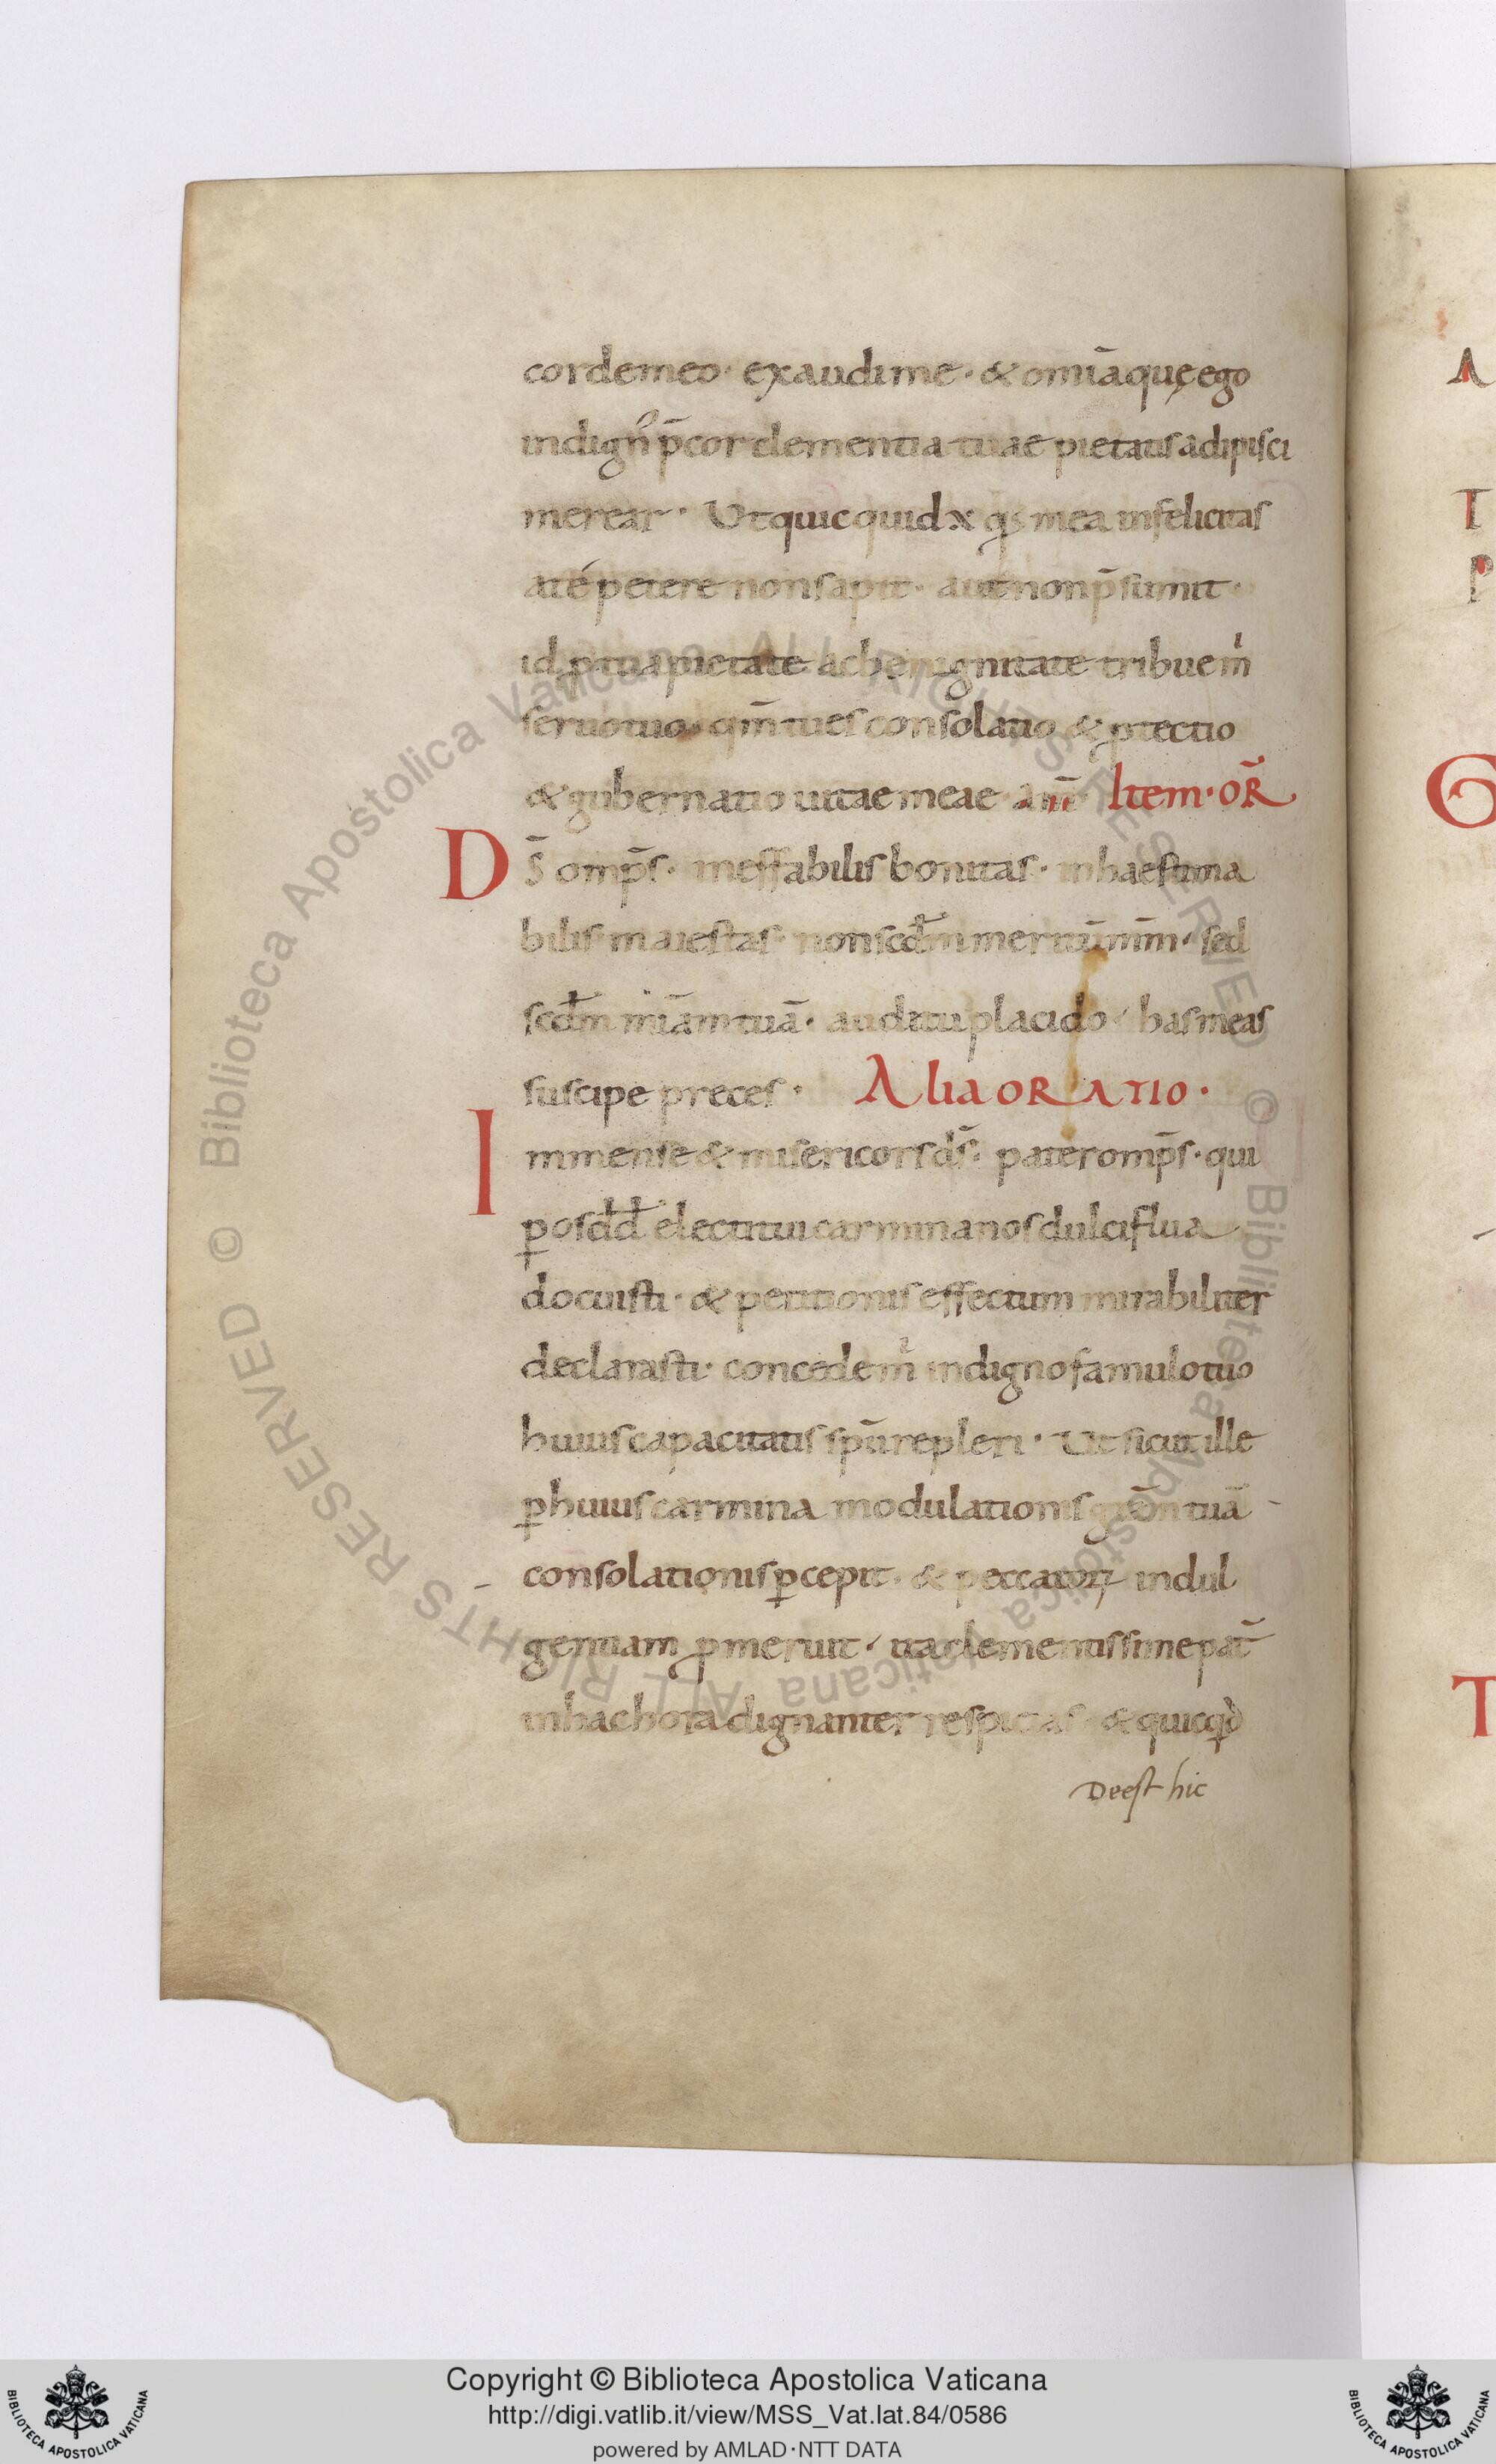 corde meo · exaudi me · & om̅ia que̜ ego
indign᷒ p̅cor clementia tuae pietatis adipisci
merear · Ut quicquid mea infelicitas
a té petere non sapit · aut non p̅sumit ·
id ꝑ tua pietate ac benignitate tribue m̍
seruo tuo · qm̅ tu es consolatio & ꝓtectio
& gubernatio uitae meae am̅ Item · OR̅
D S̅ omp̅s · ineffabilis bonitas · inhaestima
bilis maiestas · non scd̅m meritū m̅m · sed
scd̅m mi̅am tuā · auditu placido has meas
suscipe preces · Alia ORATIO ·
I mmense & misericors d̅s · pater omp̅s · qui
ꝑ os dd̅ electi tui carmina nos dulciflua
docuisti · & petitionis effectum mirabiliter
declarasti · concede m̍ indigno famulo tuo
huius capacitatis sp̅u repleri · Ut sicut ille
ꝑ huius carmina modulationis gr̅am tuā
consolationis ꝑcepit · & peccatoꝝ indul
gentiam ꝓmeruit · ita clementissime pat̅
in hac hora dignanter respicias & quicqd
Deest hic
A
T
P
G
T
© Biblioteca Apostolica Vaticana ALL RIGHTS RESERVED © Biblioteca Apostolica Vaticana ALL RIGHTS RESERVED
BIBLIOTECA APOSTOLICA VATICANA
Copyright © Biblioteca Apostolica Vaticana
http://digi.vatlib.it/view/MSS_Vat.lat.84/0586
powered by AMLAD·NTT DATA
BIBLIOTECA APOSTOLICA VATICANA